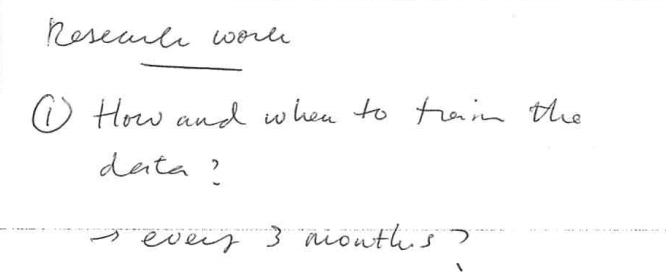 Research work
① How and when to train the
data?
→ every 3 months?